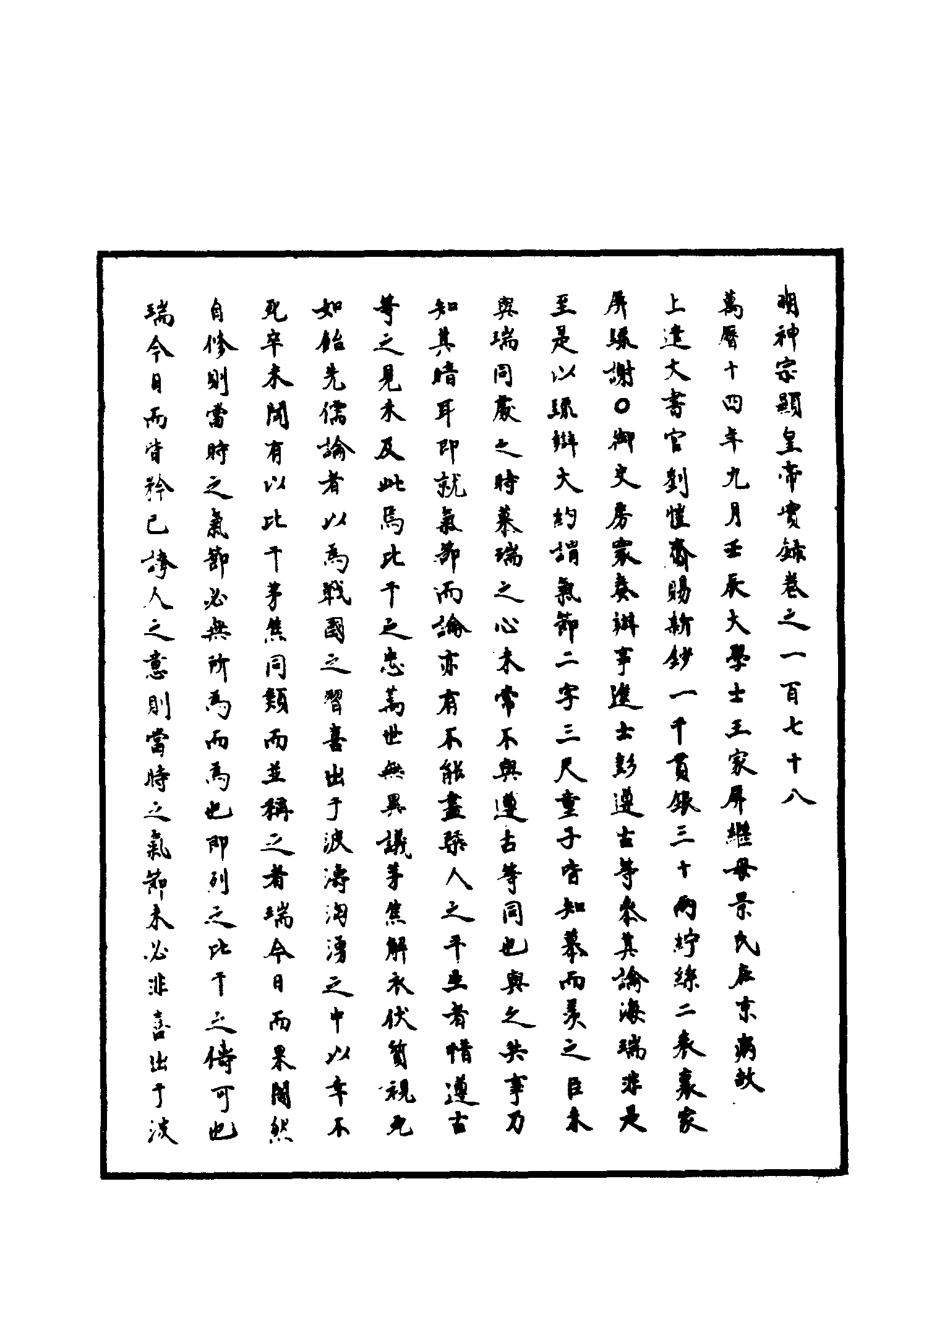 明神宗顯皇帝實錄卷之一百七十八
萬曆十四年九月壬辰大學士王家屏繼母景氏在京病故
上遣文書官劉愷齎賜新鈔一千貫銀三十兩紵絲二表裏家
屏疏謝○御史房寰奏辯事進士彭遵古等參其論海瑞非是
至是以疏辯大約謂氣節二字三尺童子皆知慕而羨之臣未
與瑞同處之時慕瑞之心未常不與遵古等同也與之共事乃
知其暗耳即就氣節而論亦有不能盡厭人之平生者惜遵古
等之見未及此焉比干之忠萬世無異議茅焦解衣伏質視死
如飴先儒論者以為戰國之習喜出于波濤洶湧之中以幸不
死卒未聞有以比干茅焦同類而並稱之者瑞今日而果闇然
自修則當時之氣節必無所為而為也即列之比干之儔可也
瑞今日而皆矜已誇人之意則當時之氣節未必非喜出于波